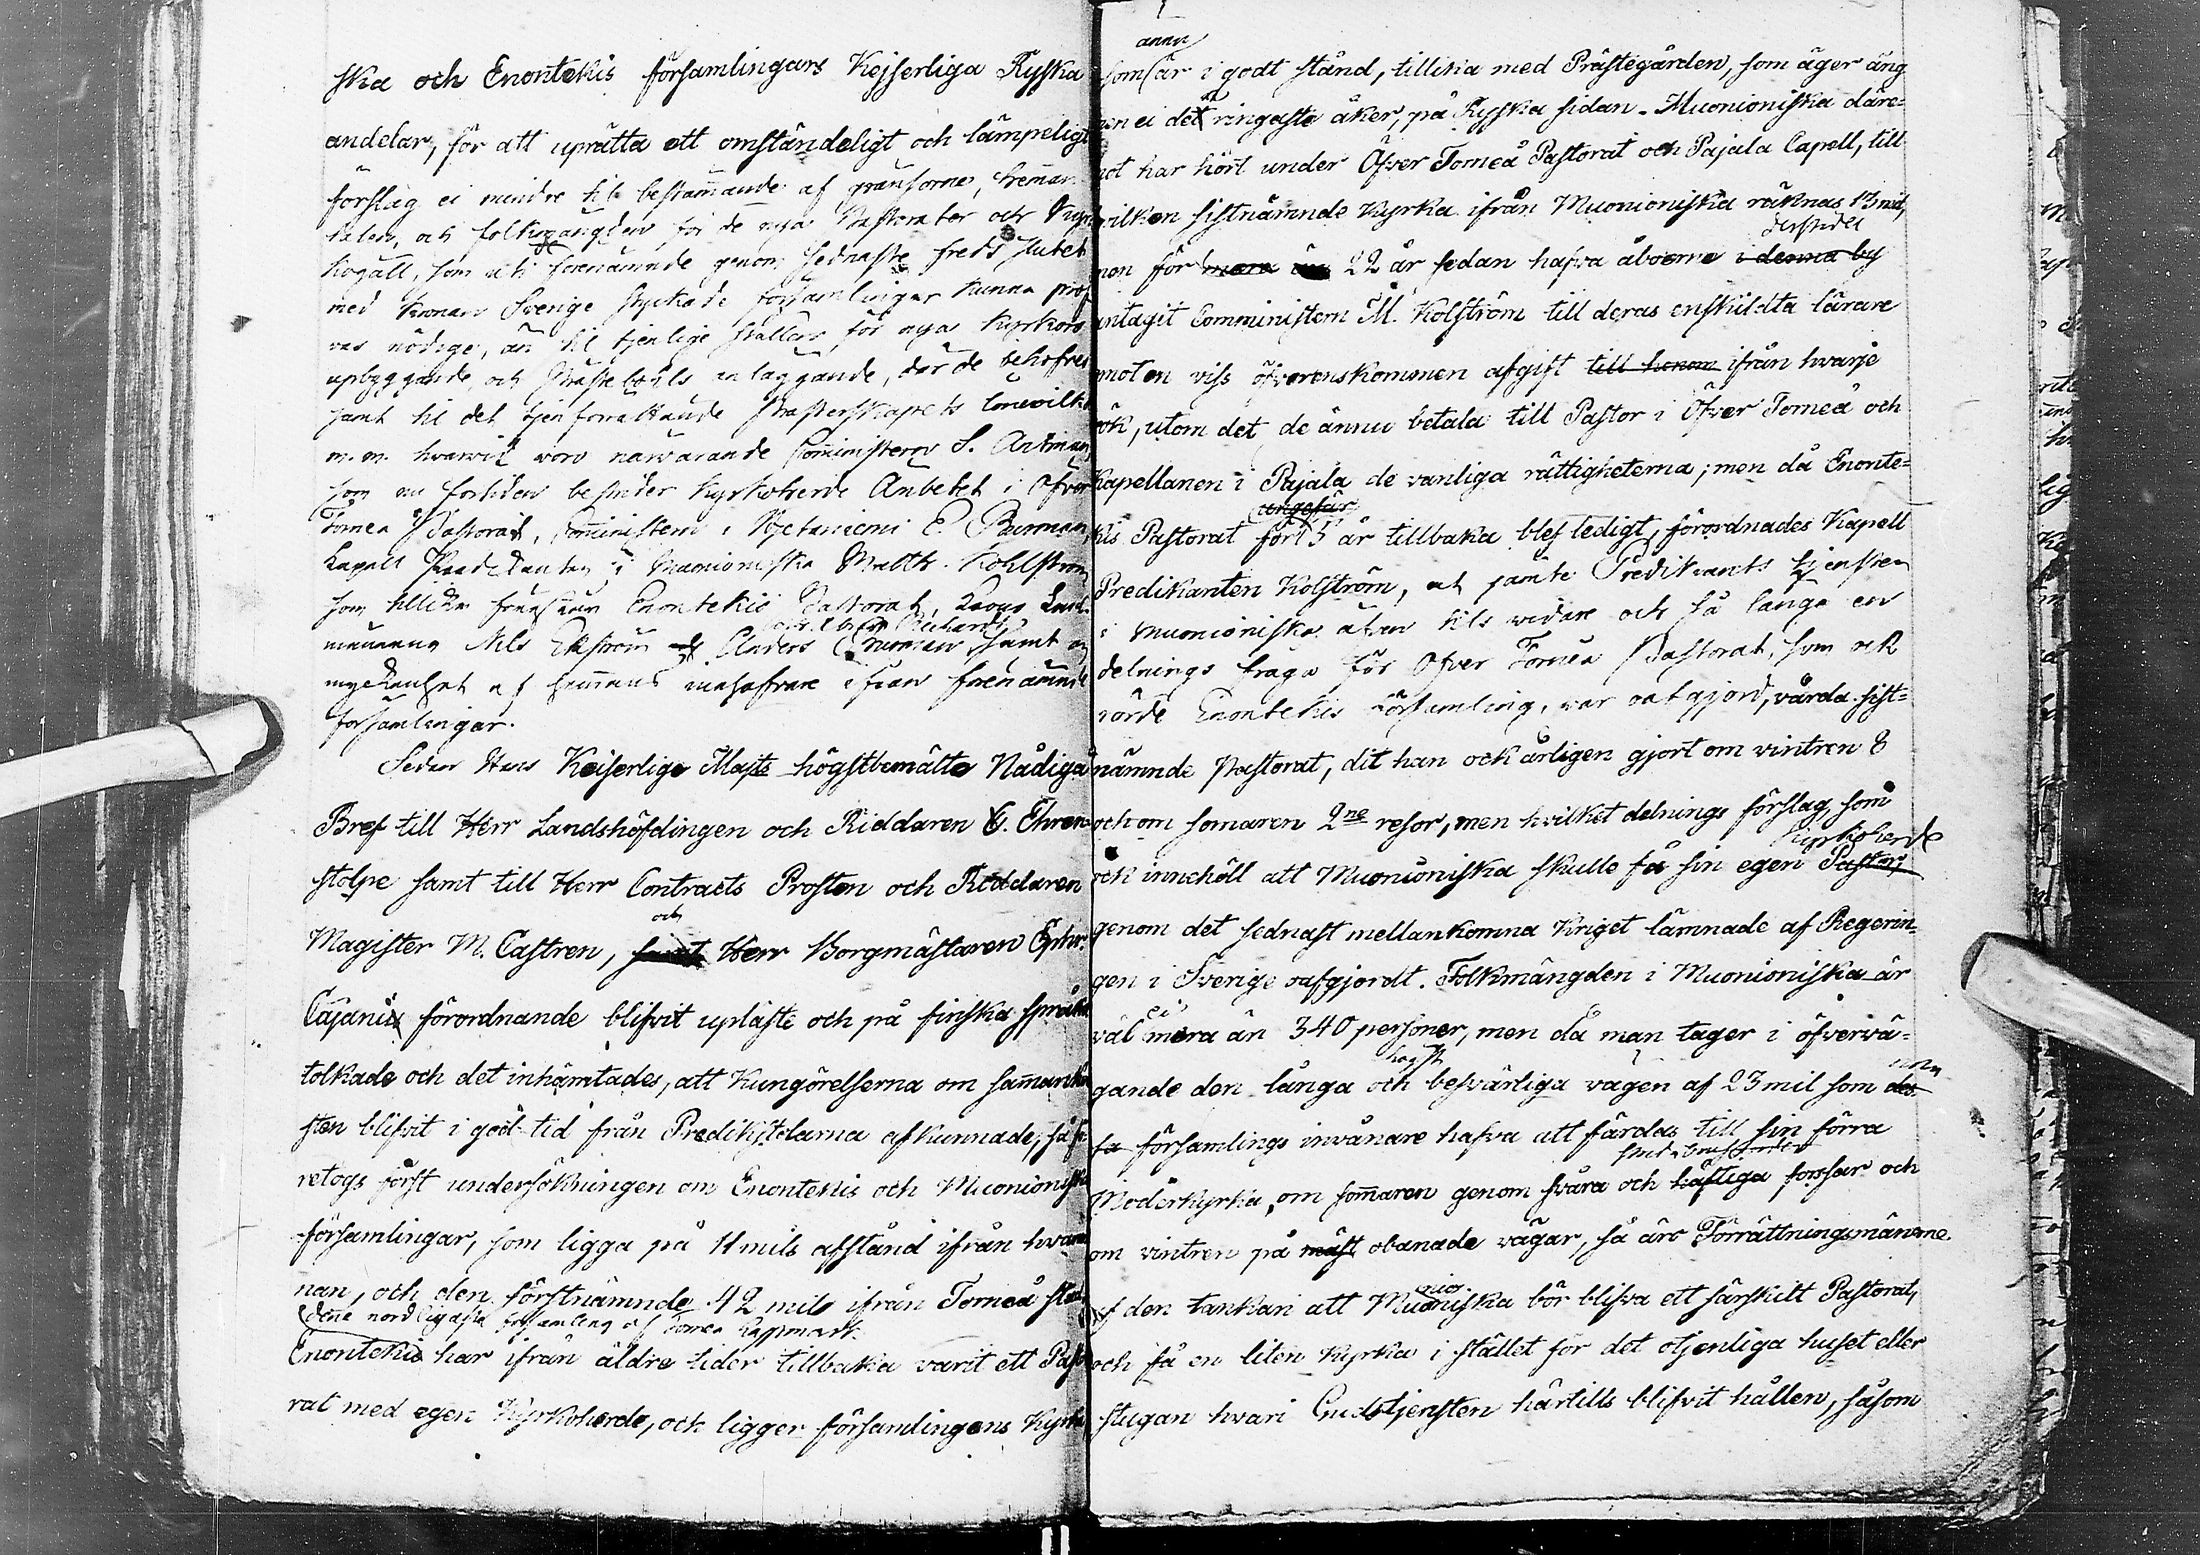 ska och Enontekis församlingars Kejserliga Ryska
andelar, för att uprätta ett omständeligt och lämpeligt
förslag ei mindre til bestämande af gränsorne, heman-
talen, och folkmängden för de nya Pastorater och
som uti förenämnde genom sednaste freds slutet
med kronan Sverige styckade församlingar kunna pröf
vas nödige, än til tjenlige ställen för nya kyrkors
upbyggande och Präste bohls anläggande, der de behöfves
samt til det tjenstförrättande Presterskapets lönevilkor
m. m. hvarvid voro närvarande Comministern S. Antman,
som nu förtiden bestrider Kyrkoherde Ämbetet i Öfver
Torneå Pastorat, Comministern i Hietaniemi E. Burman,
Kapell Predikanten i Muonioniska Matth. Kohlström
som tillika förestår Enontekis Pastorat, Krono Läns-
männerna Nils Ekström Anders Burman, samt en
myckenhet af hemans innehafvare ifrån förenämnde
församlingar.
Sedan Hans Keiserlige Majts högstbemälte Nådiga
Bref till Herr Landshöfdingen och Riddaren G. Ehren-
stolpe samt till Herr Contracts Prosten och Riddaren
och
Magister M. Castren, samt Herr Borgmästaren Ephr.
Cajani förordnande blifvit upläste och på finska språket
tolkade och det inhämtades, att Kungörelserna om samanko
sten blifvit i god tid från Predikstolarna afkunnade, så fö
retogs först undersökningen om Enontekis och Muonioniska
församlingar, som ligga på 11 mils afstånd ifrån hvaran
nan, och den förstnämnde 42 mils ifrån Torneå stad,
dene nordligaste församling af Torneå Lappmark.
Enontekis har ifrån äldre tider tillbaka varit ett Pasto
rat med egen Kyrkoherde, och ligger församlingens Kyrka
ännu
som är i godt stånd, tillika med Prästegården, som äger äng
men ei det ringaste åker, på Ryska sidan. Muonioniska däre-
mot har hört under Öfver Torneå Pastorat och Pajala Capell, till
hvilken sistnämnde Kyrka ifrån Muonioniska räknas 13 mil,
derstädes
men för mera än 22 år sedan hafva åboerne i denna by
antagit Comministern M. Kolström till deras enskildta lärare
emot en viss öfverenskommen afgift till honom ifrån hvarje
rök, utom det de ännu betala till Pastor i Öfver Torneå och
Kapellanen i Pajala de vanliga rättigheterna; men då Enonte-
ungefär
kis Pastorat för 15 år tillbaka blef ledigt, förordnades Kapell
Predikanten Kolström, at jämte Predikants tjensten
i Muonioniska äfven tils vidare och så länge en
delnings fråga för Öfver Torneå Pastorat, som ock
rörde Enontekis församling, var oafgjord, vårda sist-
nämnde Pastorat, dit han ock årligen gjort om vintren 8
och om somaren 2ne resor, men hvilket delnings förslag, som
Kyrkoherde
ock innehöll att Muonioniska skulle få sin egen Pastor,
genom det sednast mellankomna kriget lämnade af Regerin-
gen i Sverige oafgjordt. Folkmängden i Muonioniska är
ei
väl mera än 340 personer, men då man tager i öfvervä-
högst
gande den långa och besvärliga vägen af 23 mil som
församlings invånare hafva att färdas till sin förra
Moderkyrka, om somaren genom svåra och häftiga forssar och
om vintren på mäst obanade vägar, så äro Förrättningsmännerne
nio
af den tankan att Muoniska bör blifva ett särskilt Pastorat,
och få en liten Kyrka i stället för det otjenliga huset eller
stugan hvari Gudstjensten härtills blifvit hållen, såsom